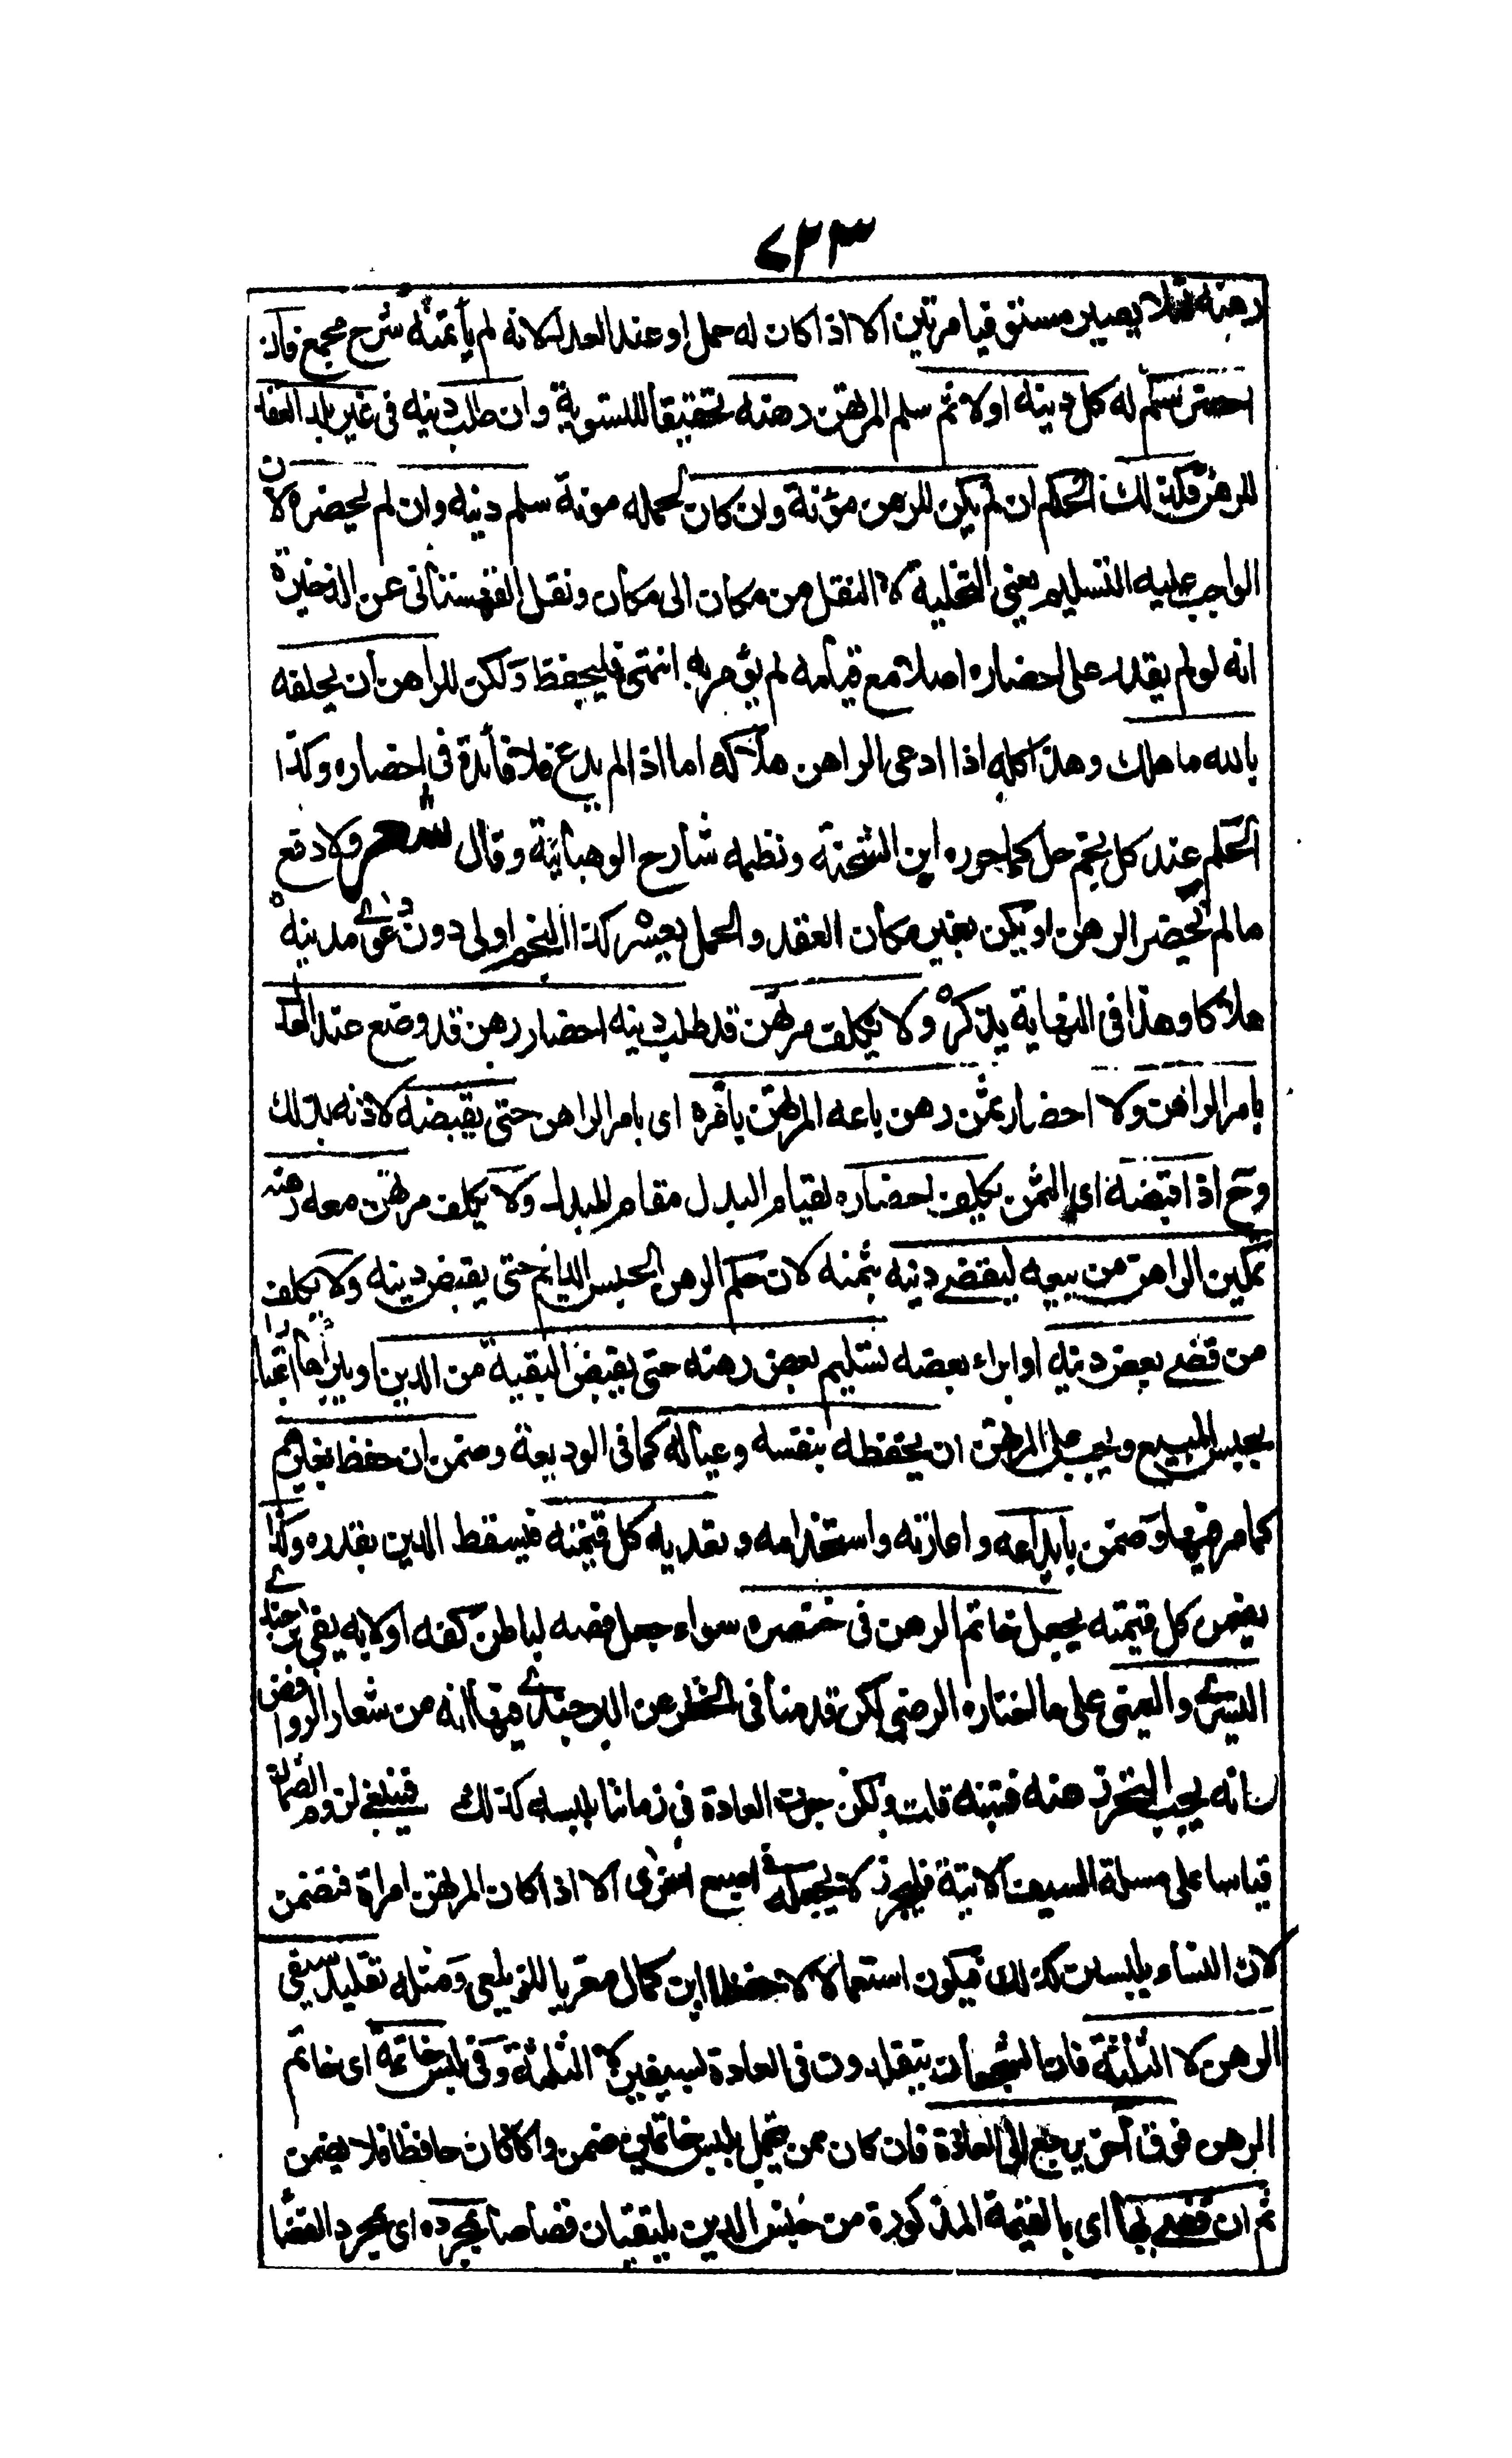 ٧٢٣
رهنه لئلا يصير مستوفيا مرتين الا اذا كان له حمل او عند العدل لانه لم يأتمنه شرح مجمع فان
احضر سلم له كل دينه اولا ثم سلم المرتهن رهنه تحقيقا للتسوية وان طلب دينه في غير بلد العقد
للرهن فكذلك الحكم ان لم يكن للرهن مؤنة وان كان لحمله مونة سلم دينه وان لم يحضره لان
الواجب عليه التسليم بمعنى التخلية لا النقل من مكان الى مكان ونقل القهستاني عن الذخيرة
انه لو لم يقدر على احضاره اصلا مع قيامه لم يؤمر به انتهى فليحفظ ولكن للراهن ان يحلفه
بالله ما هلك وهذا كله اذا ادعى الراهن هلاكه اما اذا لم يدع فلا فائدة في احضاره وكذا
الحكم عند كل نجم حل كما جوره ابن الشحنة ونظمه شارح الوهبانية وقال شعر ولا دفع
مالم يحضر الرهن او يكن بغير مكان العقد والحمل يعسر كذا النجم اولى دون دعوى مدينه
هلاكا وهذا في النهاية يذكر ولا يكلف مرتهن قد طلب دينه احضار رهن قد وضع عند العدل
بامر الراهن ولا احضار ثمن رهن باعه المرتهن بامره اى بامر الراهن حتى يقبضه لاذنه بذلك
وح اذا قبضه اى الثمن يكلف احضاره لقيام البدل مقام المبدل ولا يكلف مرتهن معه رهنه
تمكين الراهن من بيعه ليقضى دينه بثمنه لان حكم الرهن الحبس الدائم حتى يقبض دينه ولا يكلف
من قضى بعض دينه او ابراء بعضه تسليم بعض رهنه حتى يقبض البقية من الدين او يبرأها اعتبارا
بحبس المبيع ويجب على المرتهن ان يحفظه بنفسه وعياله كما في الوديعة وضمن ان حفظ بغيرهم
كما مر فيها وضمن بايداعه واعارته واستخدامه وتعديه كل قيمته فيسقط الدين بقدره وكذا
يضمن كل قيمته بجعل خاتم الرهن في خنصره سواء جعل فصه لباطن كفه اولا به يفتى برجندى
اليسرى واليمنى على ما اختاره الرضى لكن قدمنا في الحظر عن البرجندى فيها انه من شعار الروافض
وانه يجب التحرز عنه فتنبه قلت ولكن جرت العادة في زماننا بلبسه كذلك فينبغى لزوم الضمان
قياسا على مسئلة السيف الاتية فليحرر لا بجعله في اصبع اخرى الا اذا كان المرتهن امرأة فتضمن
لان النساء يلبسن كذلك فيكون استعمالا لا حفظا ابن كمال معزيا للزيلعى ومثله تقليد سيفى
الرهن لا الثلثة فان الشجعان يتقلدون في العادة بسيفين لا الثلاثة وفى لبس خاتمه اى خاتم
الرهن فوق آخر يرجع الى العادة فان كان ممن يتجمل بلبس خاتمين ضمن والا كان حافظا فلا يضمن
ثم ان قضى بها اى بالقيمة المذكورة من جنس الدين يلتقيان قصاصا بمجرده اى بمجرد القضا